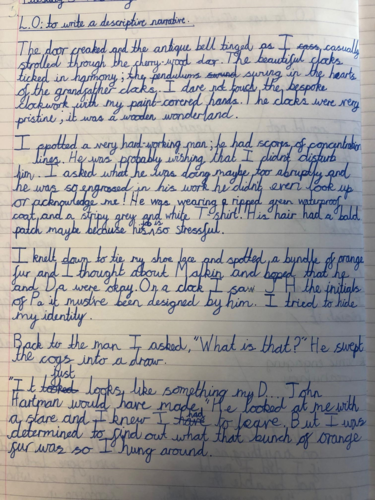 L.O: to write a descriptive narrative.
The door creaked and the antique bell tinged as I casually
strolled through the chery-wood door. The beautiful clocks
ticked in harmony; the pendulums swung in the hearts
of the grandfather clocks. I dare not touch the bespoke
clockwork with my paint-covered hands. The clocks were very
pristine, it was a wooden wonderland.
I spotted a very hard-working man; he had scores of concentration
lines. He was probably wishing that I didn't disturb
him. I asked what he was doing maybe too abruptly and
he was so engrossed in his work he didn't even look up
or acknowledge me! He was wearing a ripped green waterproof
coat and a stripy grey and white T-shirt! His hair had a bald
patch maybe because his job is so stressful.
I knelt down to tie my shoe lace and spotted a bundle of orange
fur and I thought about Malkin and hoped that he
and Da were okay. On a clock I saw J H the initials
of Pa it must've been designed by him. I tried to hide
my identity.
Back to the man I asked, "What is that?" He swept
the cogs into a draw.
"It just looks like something my D... John
Hartman would have made." He looked at me with
a glare and I knew I had to leave. But I was
determined to find out what that bunch of orange
fur was so I hung around.